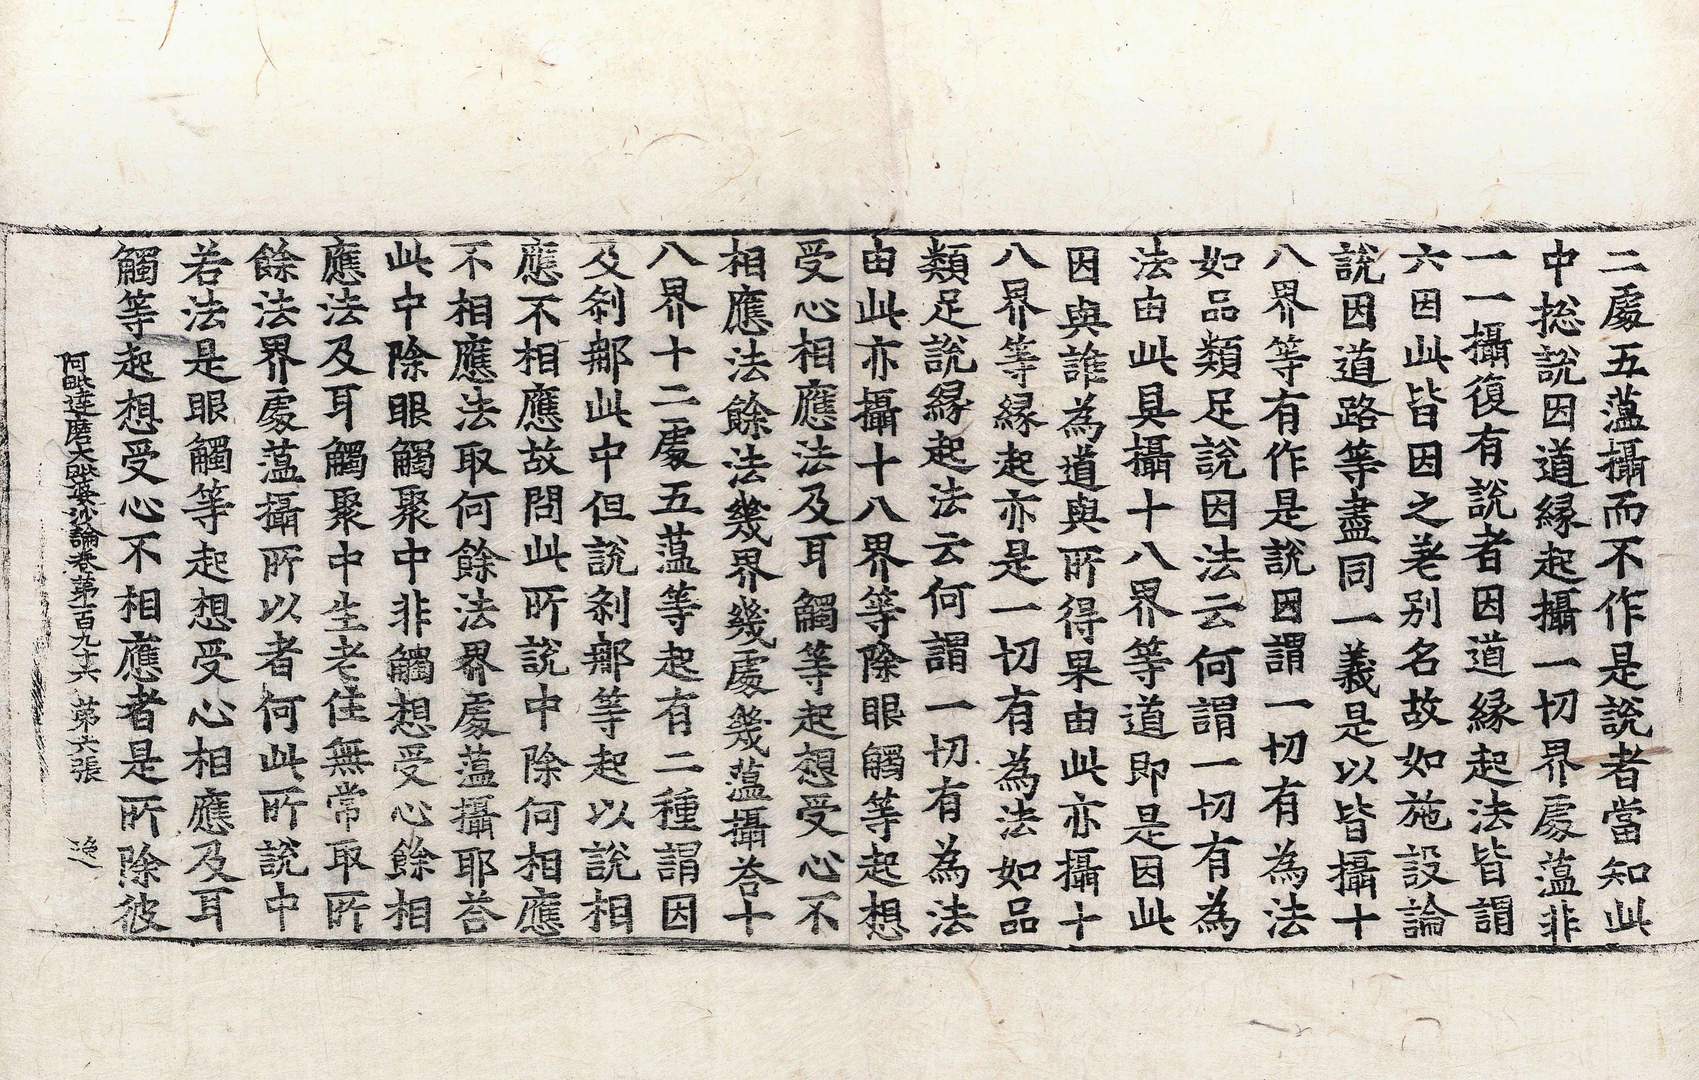 二處五蘊攝而不作是說者當知此
中揔說因道緣起攝一切界處蘊非
一一攝復有說者因道緣起法皆謂
六因此皆因之差別名故如施設論
說因道路等盡同一義是以皆攝十
八界等有作是說因謂一切有為法
如品類足說因法云何謂一切有為
法由此具攝十八界等道即是因此
因與誰為道與所得果由此亦攝十
八界等緣起亦是一切有為法如品
類足說緣起法云何謂一切有為法
由此亦攝十八界等除眼觸等起想
受心相應法及耳觸等起想受心不
相應法餘法幾界幾處幾蘊攝荅十
八界十二處五蘊等起有二種謂因
及剎那此中但說剎那等起以說相
應不相應故問此所說中除何相應
不相應法取何餘法界處蘊攝耶荅
此中除眼觸聚中非觸想受心餘相
應法及耳觸聚中生老住無常取所
餘法界處蘊攝所以者何此所說中
若法是眼觸等起想受心相應及耳
觸等起想受心不相應者是所除彼
阿毗達磨大毗婆沙論卷第一百九十六 第六張